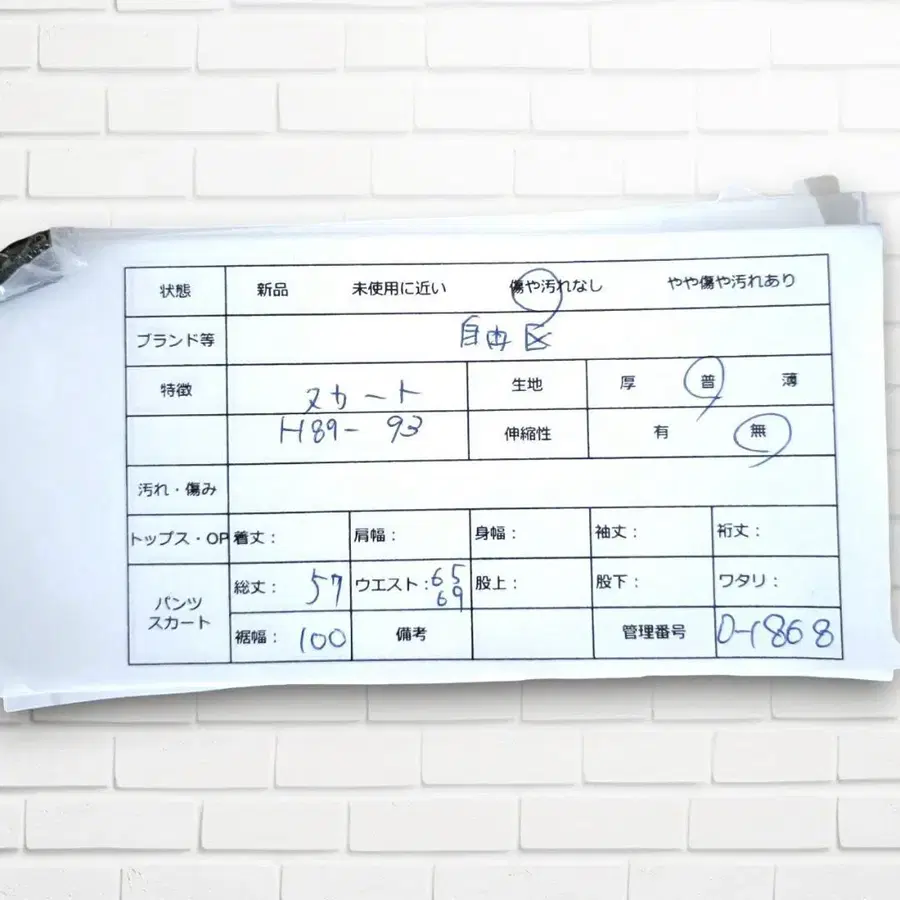 状態 新品 未使用に近い 傷や汚れなし やや傷や汚れあり
ブランド等 自由区
特徴 スカート 生地 厚 普 薄
H89-93 伸縮性 有 無
汚れ・傷み
トップス・OP 着丈： 肩幅： 身幅： 袖丈： 裄丈：
パンツ スカート 総丈： 57 ウエスト：65 69 股上： 股下： ワタリ：
裾幅： 100 備考 管理番号 D-1868